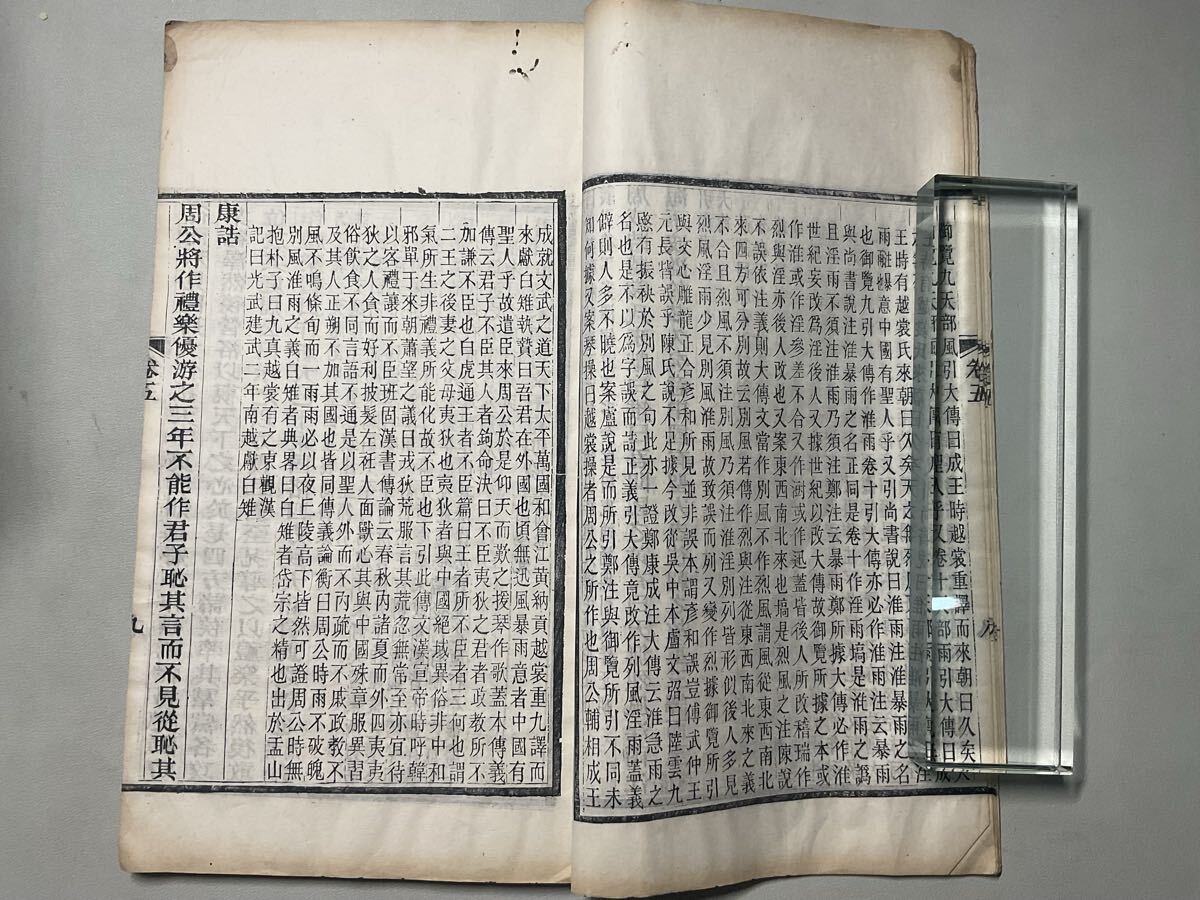 御覽九天部風引大傳曰成王時越裳重譯而來朝曰久矣天
王時有越裳氏來朝曰久矣天之無烈風
雨雖爆意中國有聖人乎又引尚書說曰淮雨注淮暴雨之名
也御覽九引大傳作淮雨卷十引大傳亦必作淮雨注云暴雨
與尚書說注淮暴雨之名正同是卷十作淫雨塙是淮雨之譌
且淫雨不須注淮雨乃須注鄭注云暴雨則鄭所據大傳必作淮
世紀妄改爲淫雨後人又據世紀以改大傳故御覽所據之本或
作淮或作淫參差不合又作澍或作迅蓋皆後人所改稽瑞作
烈與淫亦後人所改也又案東西南北來也乃是烈風之注陳說
不誤依注義則大傳文當作別風不作烈風謂風從東西南北
來四方可分別故云別風若傳作烈與注從東西南北來之義
不合且烈風不須注別風乃須注淮淫別列皆形似後人多見
烈風淫雨少見別風淮雨故致誤而列又變作烈據御覽所引
與文心雕龍正合彥和所見並非誤本謂彥和誤豈傅武仲王
元長皆誤乎陳氏說不足據今改從吳中本盧文弨曰陸雲九
愍有振袂於別風之句此亦一證鄭康成注大傳云淮急雨之
名也是不以爲字誤而詩正義引大傳竟改作列風淫雨蓋義
僻則人多不曉也案盧說是而所引鄭注與御覽所引不同未
知何據又案琴操曰越裳操者周公之所作也周公輔相成王
成就文武之道天下太平萬國和會江黃納貢越裳重九譯而
來獻白雉執贄曰吾君在外國也頃無迅風暴雨意者中國有
聖人乎故遣臣來周公於是仰天而歎之援琴作歌蓋本傳義
傳云君子不臣其人者鉤命決曰不臣夷狄之君者政教所不
加謙不臣也白虎通王者不臣篇曰王者所不臣者三何也謂
二王之後妻之父母夷狄也夷狄者與中國絕域異俗非中和
氣所生非禮義所能化故不臣也下引此傳文漢宣帝時呼韓
邪單于來朝蕭望之議曰戎狄荒服言其荒忽無常至亦宜待
以客禮讓而不臣班固漢書傳論云春秋內諸夏而外四夷夷
狄之人貪而好利披髮左衽人面獸心其與中國殊章服異習
俗飲食不同言語不通是以聖人外而不內疏而不戚政教不
及其人正朔不加其國也皆同傳義論衡曰周公時雨不破魄
風不鳴條旬而一雨雨必以夜丘陵高下皆然可證周公時無
別風淮雨之義白雉者典畧曰白雉者岱宗之精也出於盂山
抱朴子曰九真越裳有之東觀漢
記曰光武建武二年南越獻白雉
康誥
周公將作禮樂優游之三年不能作君子恥其言而不見從恥其
卷五
九